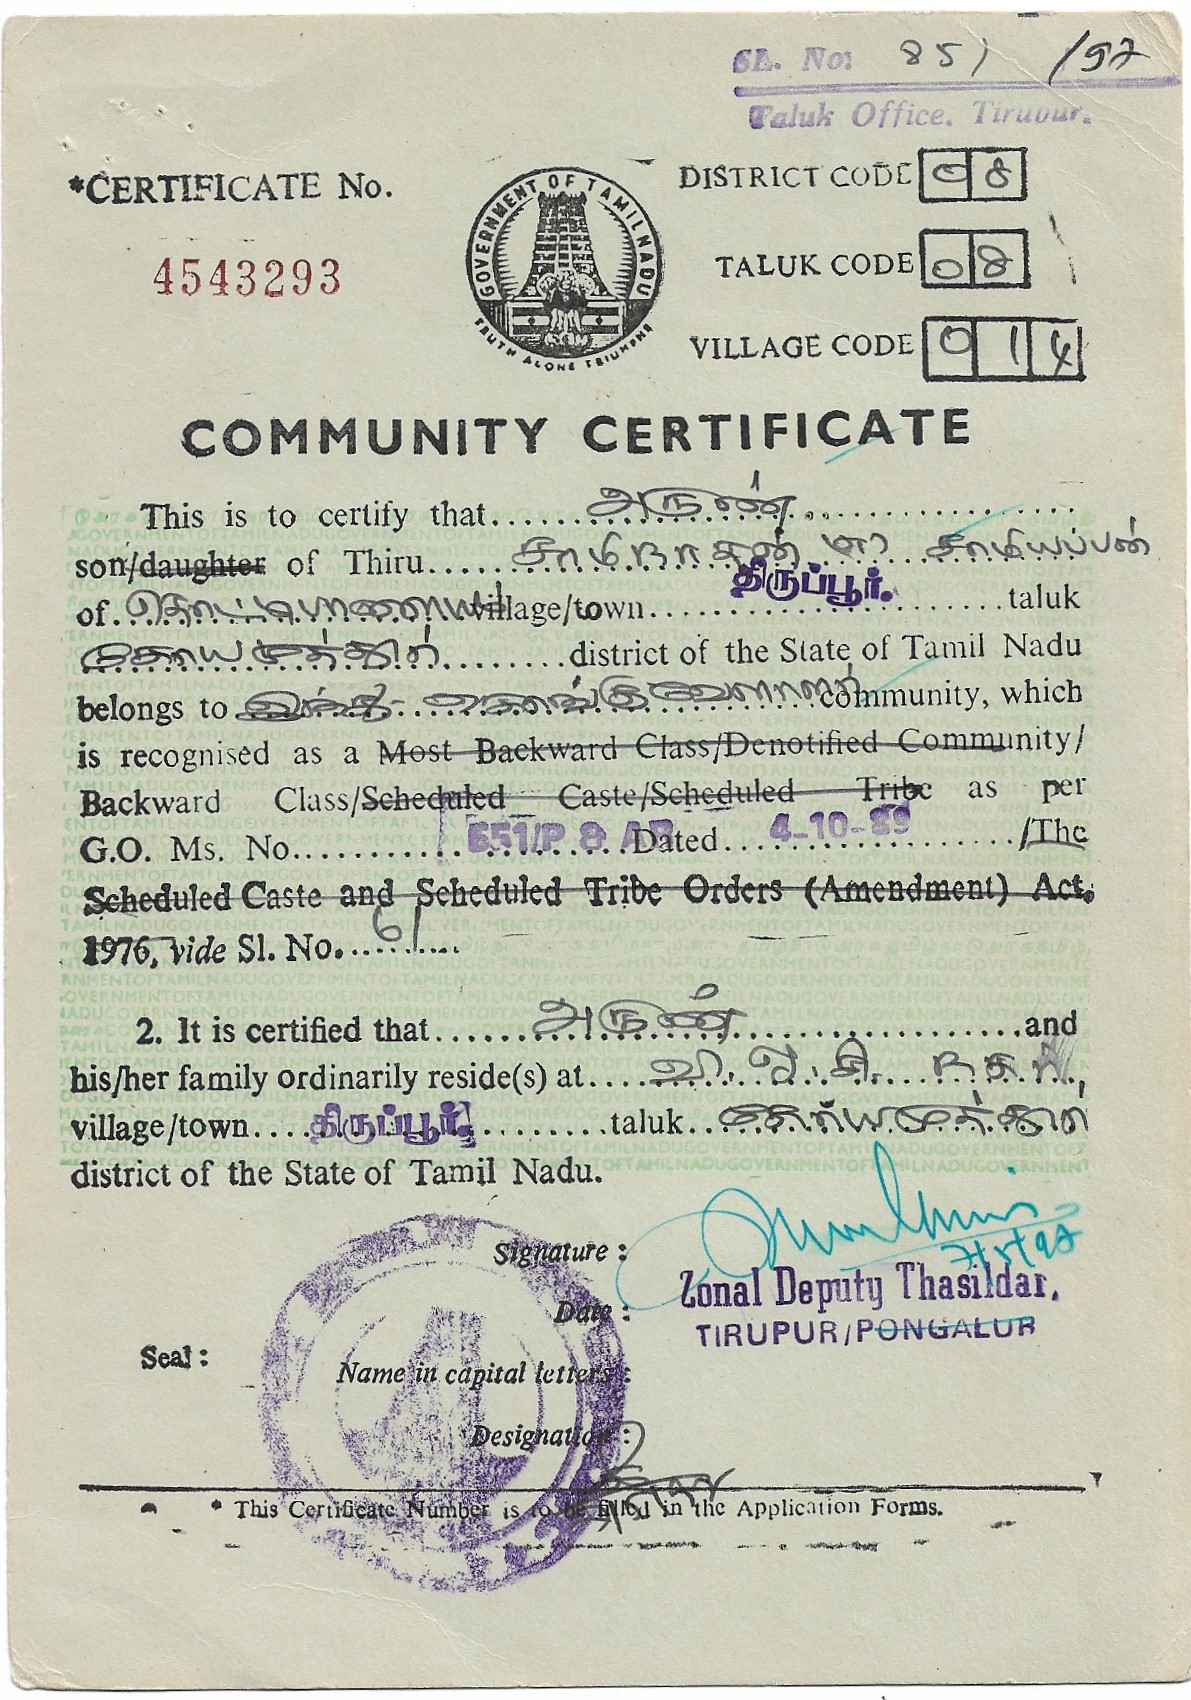 SL. No: 851 /97
Taluk Office, Tirupur.
*CERTIFICATE No.
4543293
GOVERNMENT OF TAMILNADU
TRUTH ALONE TRIUMPHS
DISTRICT CODE 08
TALUK CODE 08
VILLAGE CODE 014
COMMUNITY CERTIFICATE
This is to certify that......அருண்......
son/daughter of Thiru......சாமிநாதன் சாமியப்பன்
of......village/town......திருப்பூர்.......taluk
கோயமுத்தூர்........district of the State of Tamil Nadu
belongs to இந்து கொங்கு வேளாளர் community, which
is recognised as a Most Backward Class/Denotified Community/
Backward Class/Scheduled Caste/Scheduled Tribe as per
G.O. Ms. No......651/P & AR Dated......4-10-89....../The
Scheduled Caste and Scheduled Tribe Orders (Amendment) Act.
1976, vide Sl. No...61.....
2. It is certified that......அருண்......and
his/her family ordinarily reside(s) at....வி. ஓ. சி. நகர்,
village/town....திருப்பூர்.......taluk..கோயமுத்தூர்
district of the State of Tamil Nadu.
Signature :
7/5/97
Zonal Deputy Thasildar,
Date :
TIRUPUR/PONGALUR
Seal :
Name in capital letters :
Designation :
* This Certificate Number is to be filled in the Application Forms.